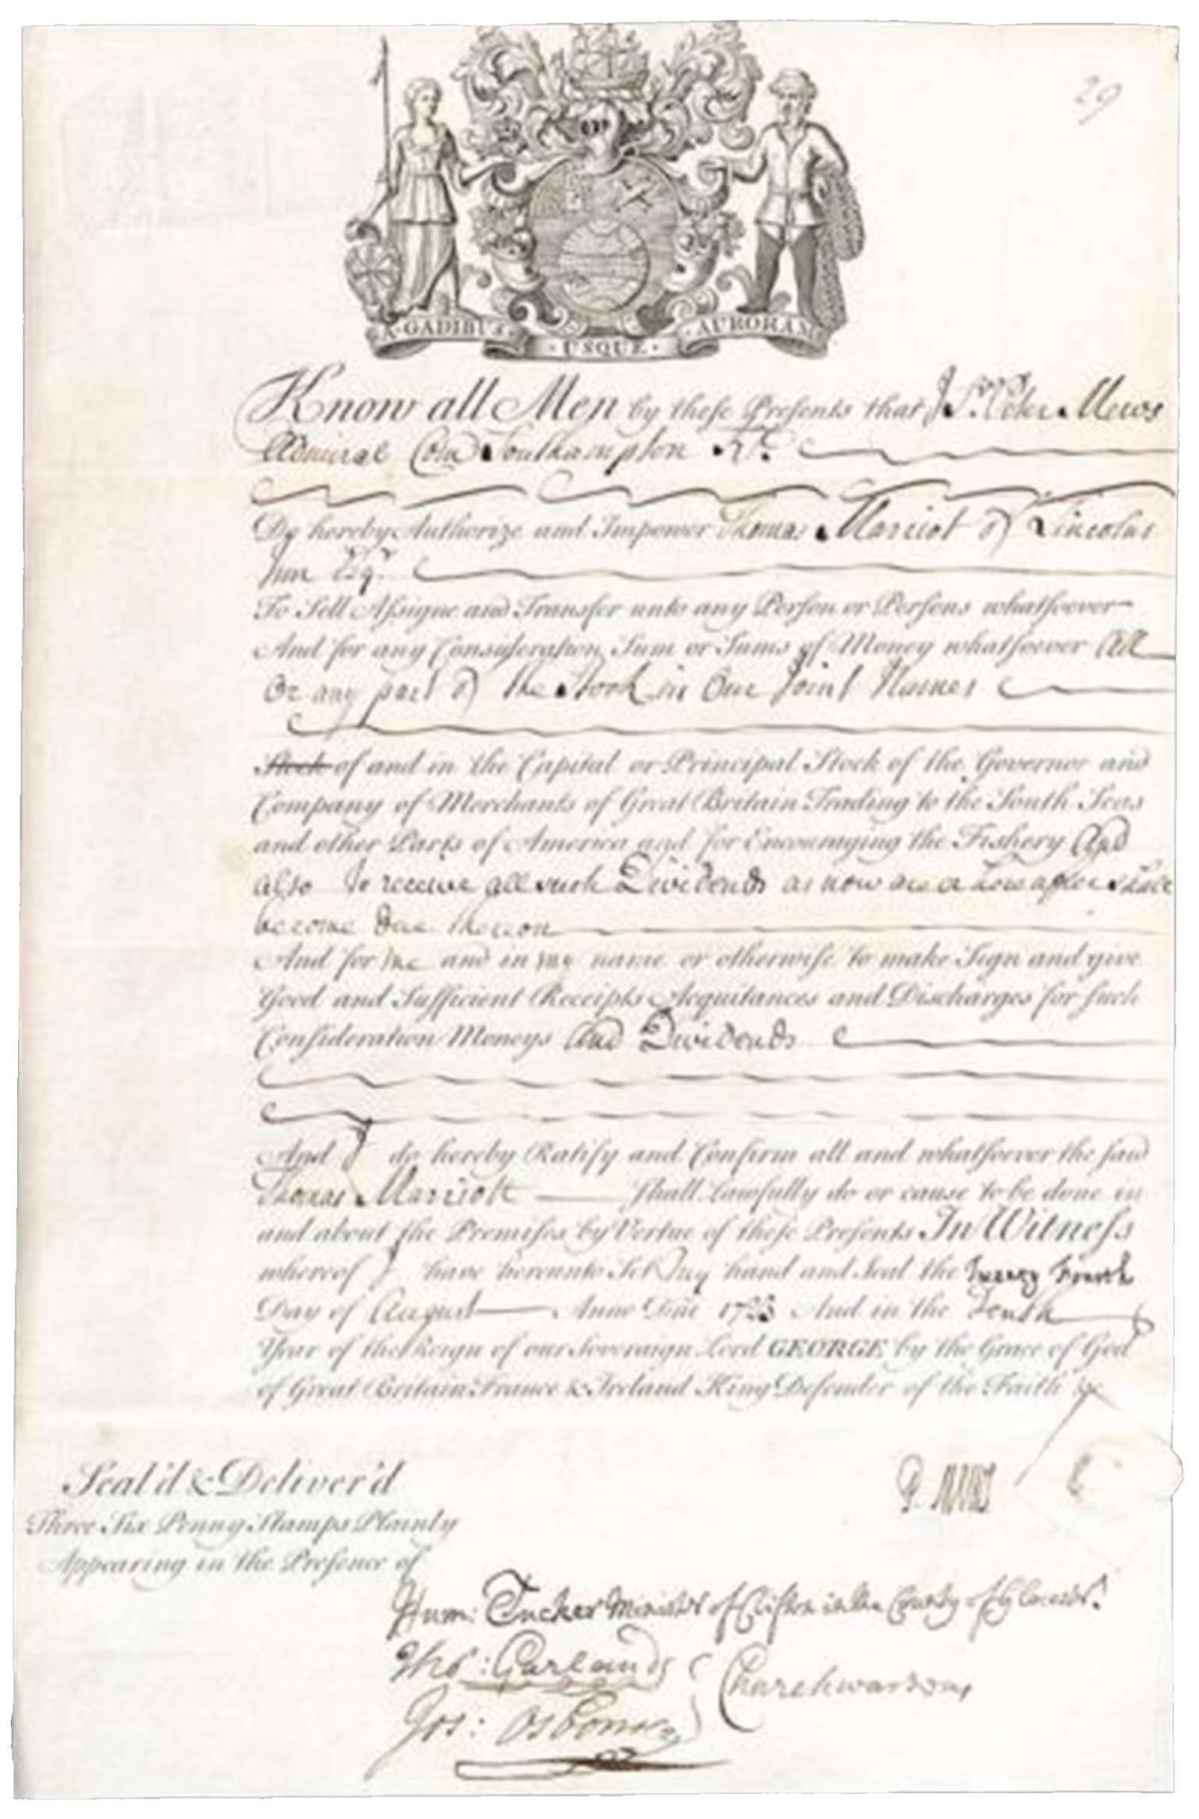 29
A·GADIBUS · USQUE · AURORAM
Know all Men by these Presents that I Sr. Peter Mews
Admiral Com Southampton Kt.
Do hereby Authorize and Impower Thomas Marriot of Lincolns
Inn Esqr.
To Sell Assigne and Transfer unto any Person or Persons whatsoever
And for any Consideration Sum or Sums of Money whatsoever All
Or any part of the Stock in Our Joint Names
Stock of and in the Capital or Principal Stock of the Governor and
Company of Merchants of Great Britain Trading to the South Seas
and other Parts of America and for Encouraging the Fishery And
also To receive all such Dividends as now are or hereafter shall
become due thereon
And for me and in my name or otherwise to make Sign and give
Good and Sufficient Receipts Acquitances and Discharges for such
Consideration Moneys and Dividends
And I do hereby Ratify and Confirm all and whatsoever the said
Thomas Marriott Shall Lawfully do or cause to be done in
and about the Premises by Vertue of these Presents In Witness
whereof I have hereunto Set my hand and Seal the Twenty Fourth
Day of August Anno Dni 1723 And in the Tenth
Year of the Reign of our Sovereign Lord GEORGE by the Grace of God
of Great Britain France & Ireland King Defender of the Faith &c
P. Mews
Seal'd & Deliver'd
Three Six Penny Stamps Plainly
Appearing in the Presence of
Hum: Tucker Minister of Clifton in the County of Glocestr.
Tho: Garland
Churchwardens
Jos: Osborne